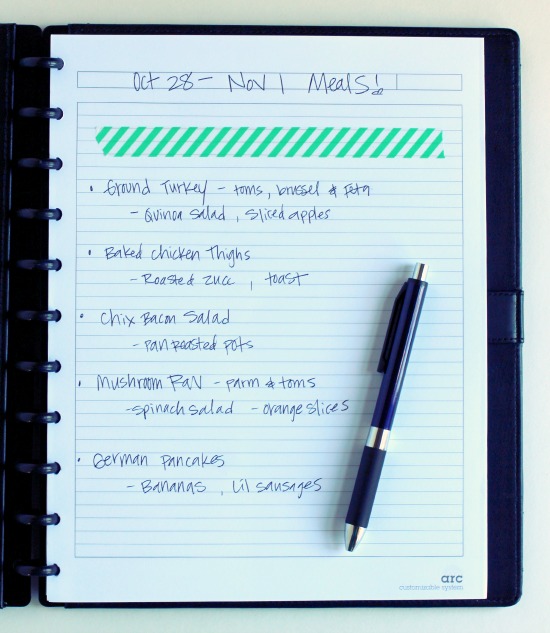 Oct 28 - Nov 1 Meals!
• Ground Turkey - toms, brussel & Feta
- Quinoa Salad, Sliced apples
• Baked Chicken Thighs
- Roasted zucc, toast
• Chix Bacon Salad
- Pan Roasted Pots
• Mushroom Rav - parm & toms
- Spinach Salad - orange slices
• German Pancakes
- Bananas, Lil Sausages
arc
customizable system